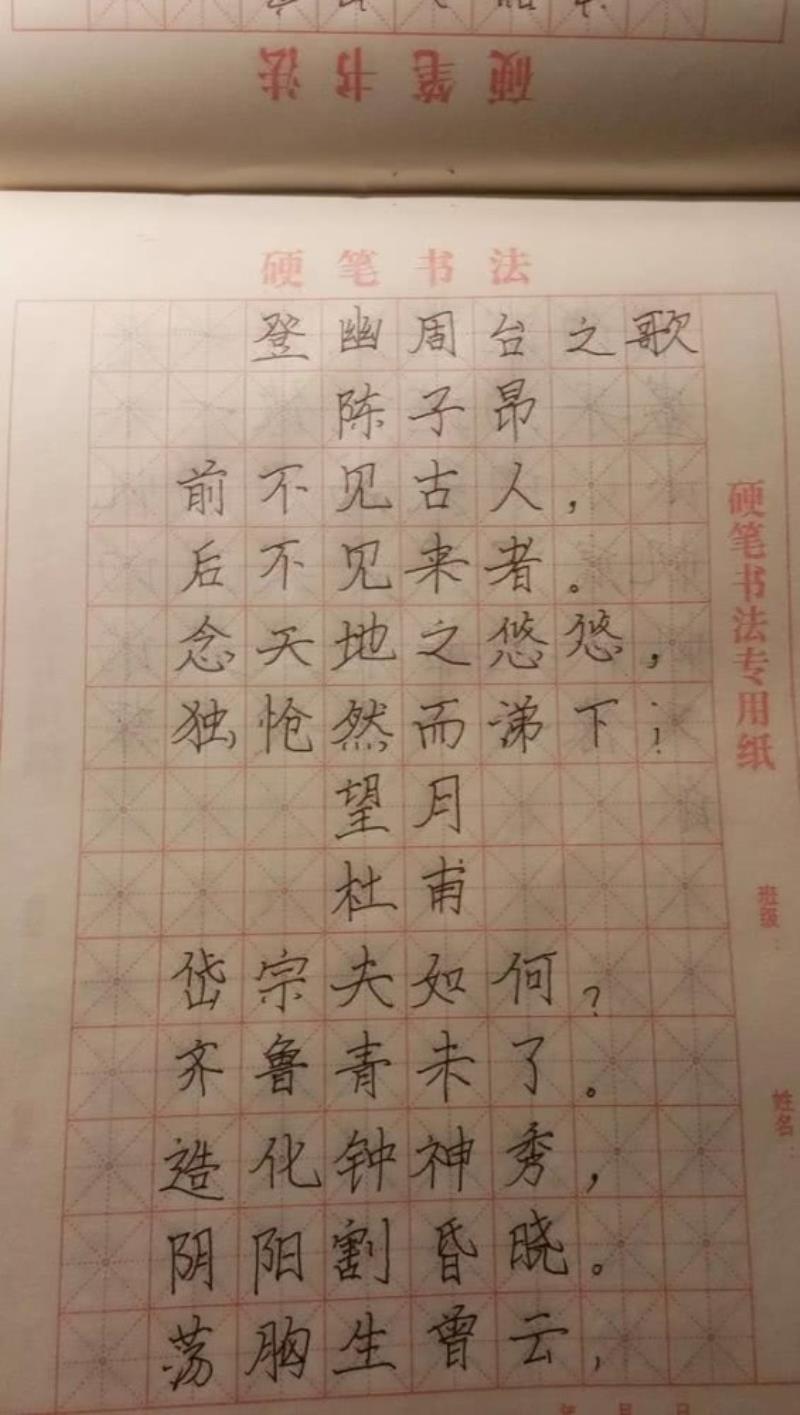 硬笔书法
硬笔书法
登幽周台之歌
陈子昂
前不见古人，
后不见来者。
念天地之悠悠，
独怆然而涕下！
望月
杜甫
岱宗夫如何？
齐鲁青未了。
造化钟神秀，
阴阳割昏晓。
荡胸生曾云，
硬笔书法专用纸
班级：
姓名：
年 月 日